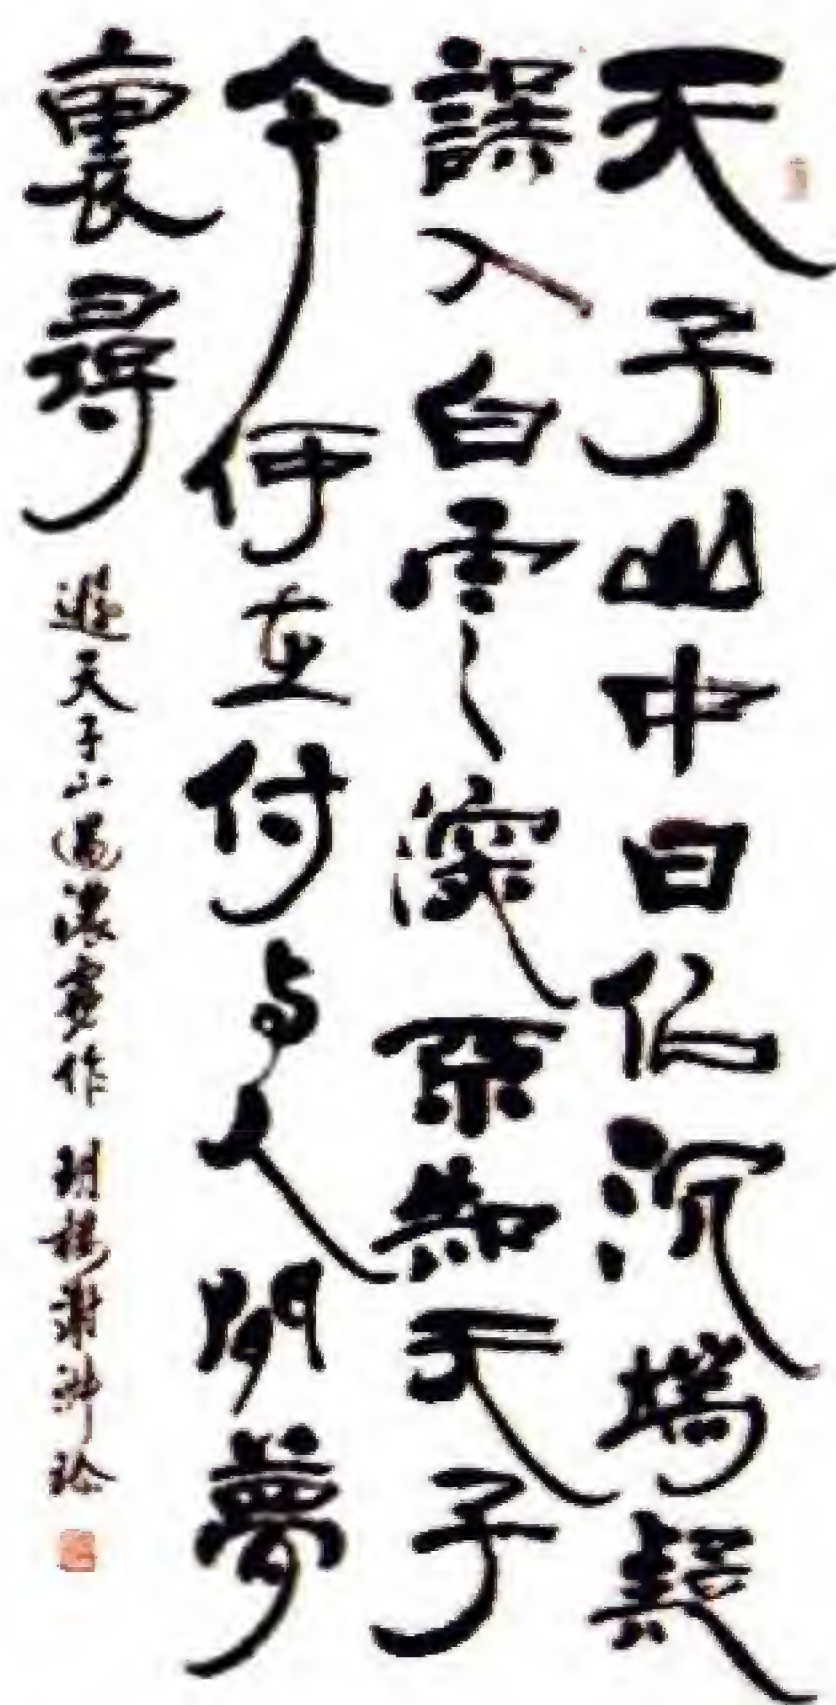 天子山中日似沉端疑
誤入白雲深原知天子
今何在付与人間夢
裏尋
遊天子山遇濃霧作